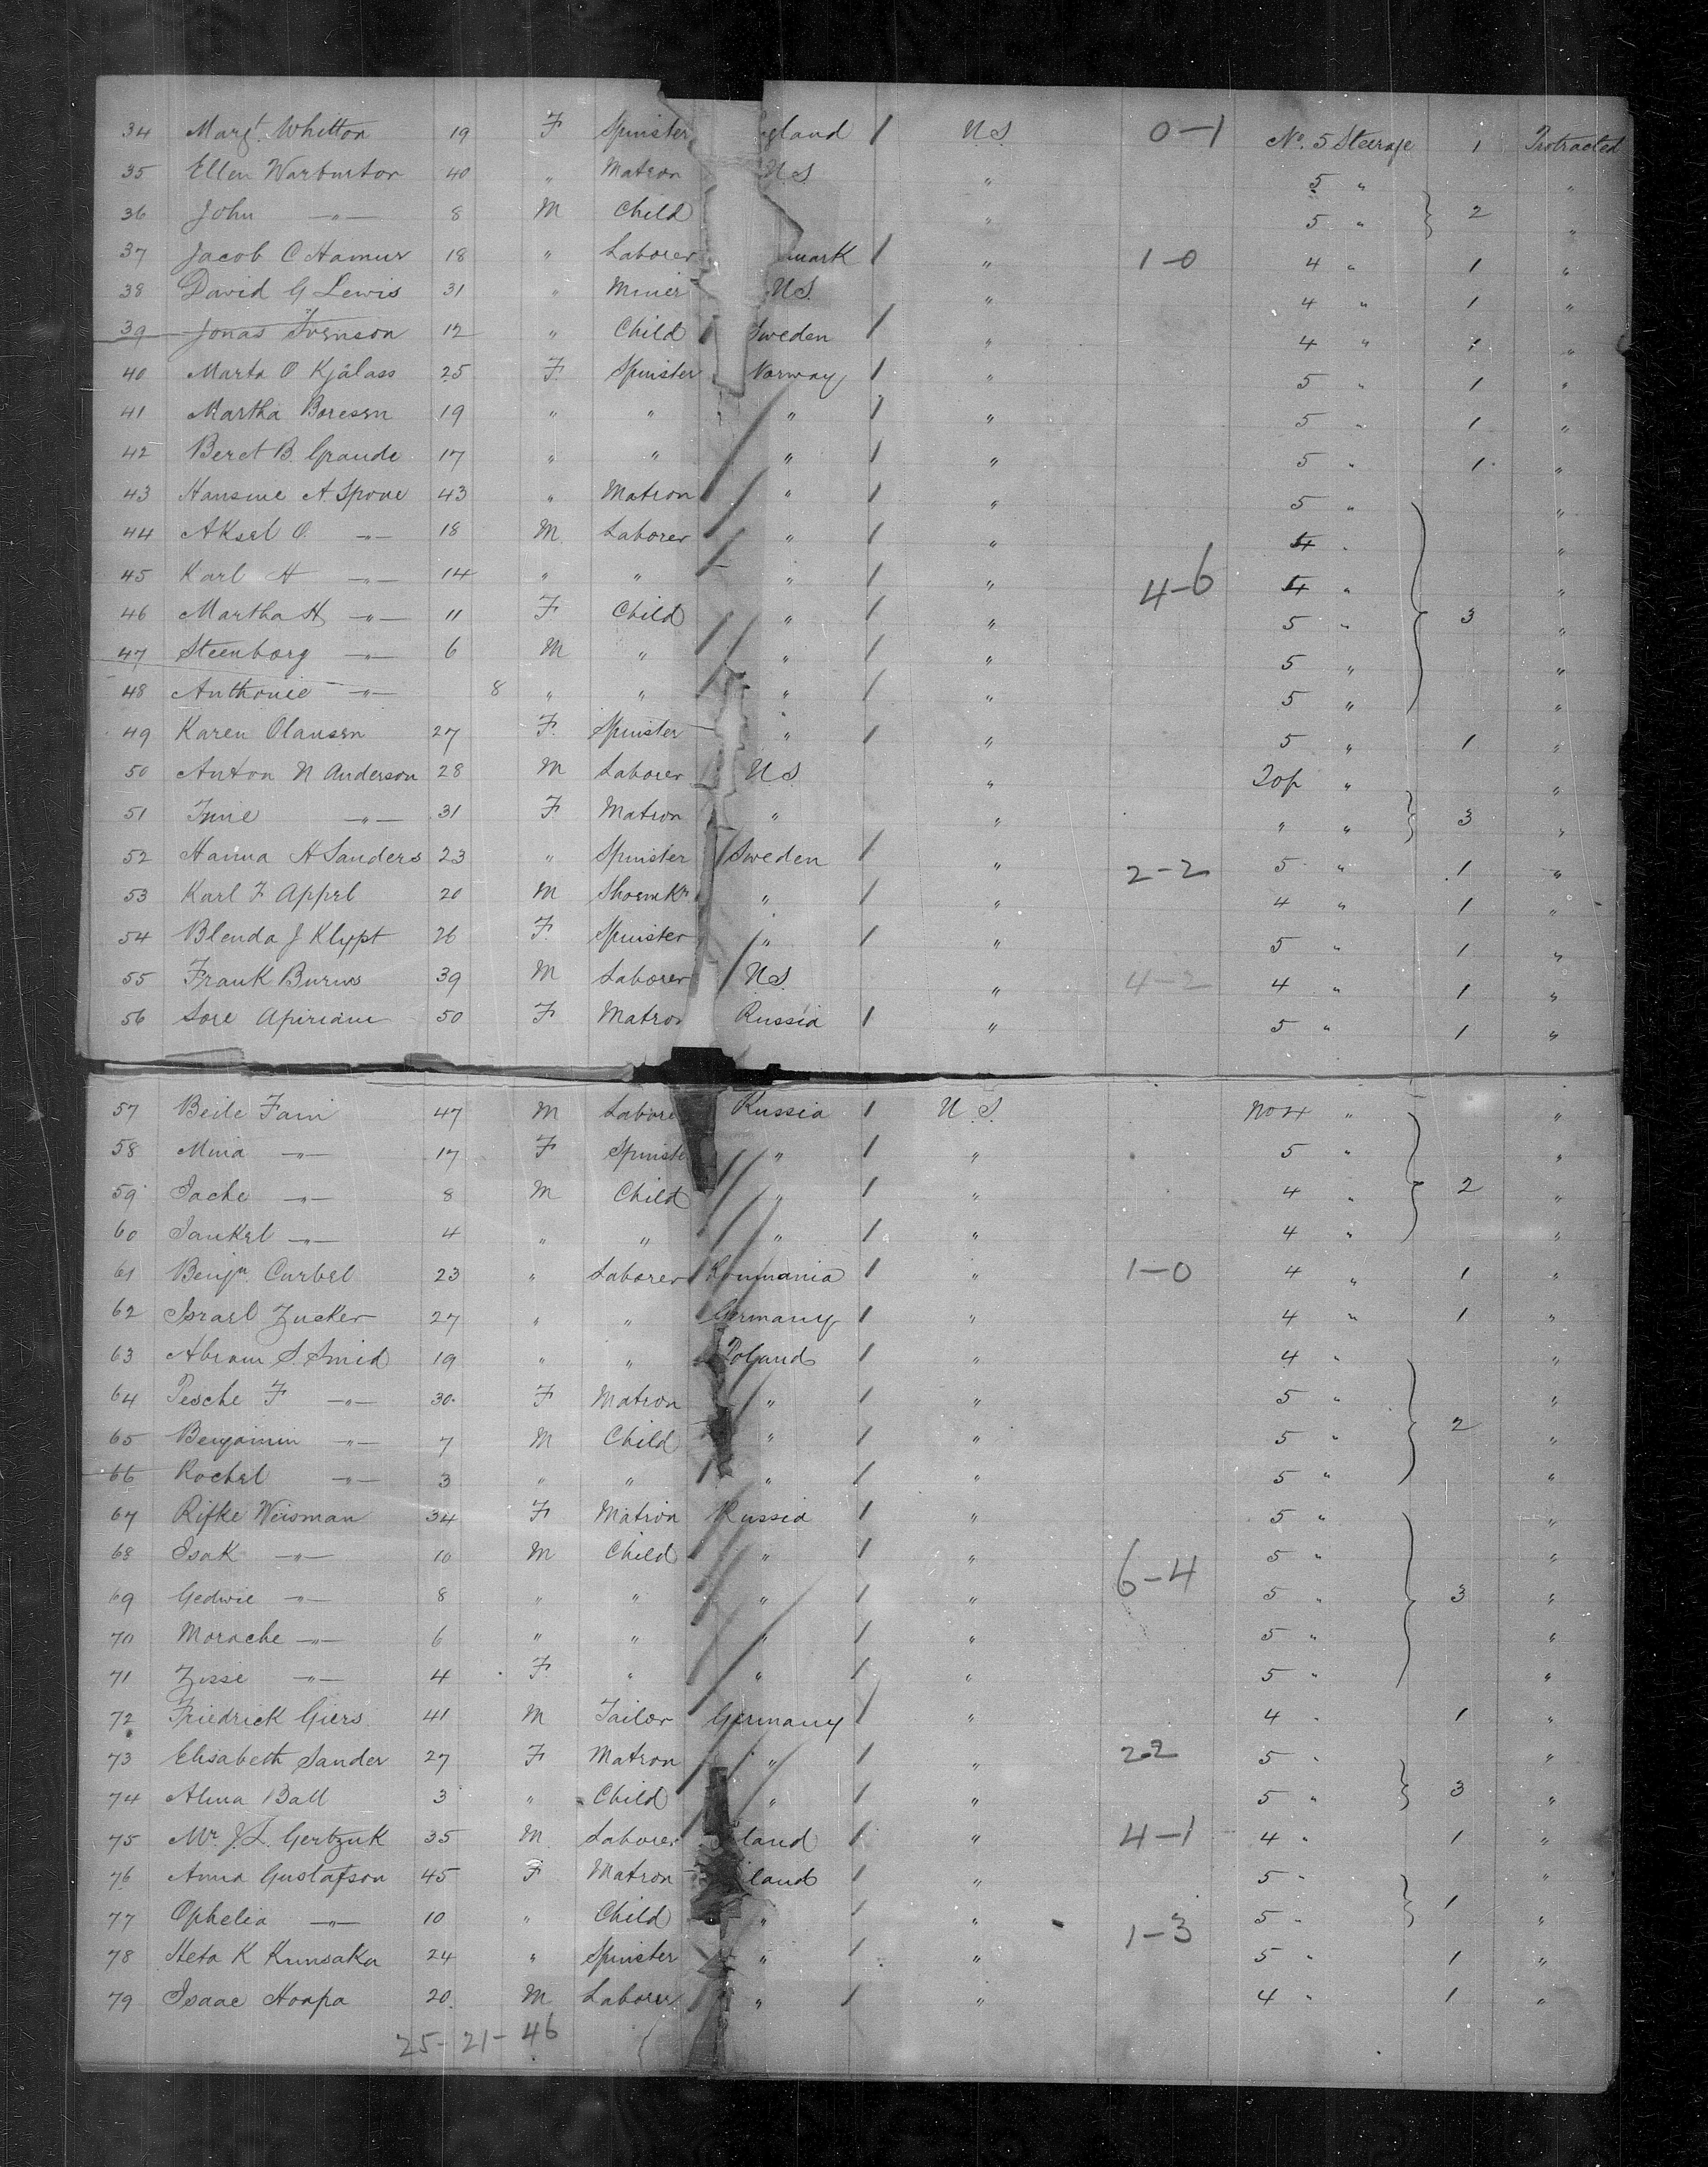 34 Margt. Whitton 19 F Spinster gland / U.S. 0-1 No. 5 Steerage 1 Protracted
35 Ellen Warburton 40 " Matron U.S. " 5 " "
36 John —"— 8 M Child " 5 " 2 "
37 Jacob C Hamur 18 " Laborer mark / " 1-0 4 " 1 "
38 David G Lewis 31 " Miner U.S. " 4 " 1 "
39 Jonas Svenson 12 " Child Sweden / " 4 " 1 "
40 Marta O Kjålass 25 F. Spinster Norway / " 5 " 1 "
41 Martha Boresen 19 " " " / " 5 " 1 "
42 Beret B. Graude 17 " " " / " 5 " 1 "
43 Hansine A. Spove 43 " Matron " / " 5 " "
44 Aksel O. —"— 18 M. Laborer " / " 4 " "
45 Karl H —"— 14 " " " / " 4-6 4 " "
46 Martha H —"— 11 F Child " / " 5 " 3 "
47 Steenborg —"— 6 M " " / " 5 " "
48 Anthonie —"— 8 " " " / " 5 " "
49 Karen Olansen 27 F. Spinster " / " 5 " 1 "
50 Anton N Anderson 28 M Laborer U.S. " 20p " "
51 —"— 31 F Matron " " " " 3 "
52 Hanna H Sanders 23 " Spinster Sweden / " 2-2 5 " 1 "
53 Karl F Appel 20 M Shoemkr " / " 4 " 1 "
54 Blenda J Klypt 26 F. Spinster " / " 5 " 1 "
55 Frank Burns 39 M Laborer U.S. " 4-2 4 " 1 "
56 Sore Apiriam 50 F Matron Russia / " 5 " 1 "
57 Beile Fain 47 M Labore Russia / U.S. No 4 " "
58 Mina —"— 17 F Spinste " / " 5 " "
59 Sache —"— 8 M Child " / " 4 " 2 "
60 Jankel —"— 4 " " " / " 4 " "
61 Benjn. Curbel 23 " Laborer Roumania / " 1-0 4 " 1 "
62 Israel Zucker 27 " " Germany / " 4 " 1 "
63 Abram S. Smid 19 " " Poland / " 4 " "
64 Pesche F —"— 30 F Matron " / " 5 " "
65 Benjamin —"— 7 M Child " / " 5 " 2 "
66 Rochel —"— 3 " " " / " 5 " "
67 Rifke Weisman 34 F Matron Russia / " 5 " "
68 Isak —"— 10 M Child " / " 5 " "
69 Gedwie —"— 8 " " " / " 6-4 5 " 3 "
70 Morache —"— 6 " " " / " 5 " "
71 Zisse —"— 4 F. " " / " 5 " "
72 Friedrick Giers 41 M Tailor Germany / " 4 " 1 "
73 Elisabeth Sander 27 F Matron " / " 2-2 5 " "
74 Alma Ball 3 " Child " / " 5 " 3 "
75 Mr. J.L. Gertzuk 35 M. Laborer land / " 4-1 4 " 1 "
76 Anna Gustafson 45 F Matron land / " 5 " "
77 Ophelia —"— 10 " Child " / " 5 " 1 "
78 Heta K Kunsaka 24 " Spinster " / " 1-3 5 " 1 "
79 Isaac Hoapa 20 M Laborer " / " 4 " 1 "
25-21-46